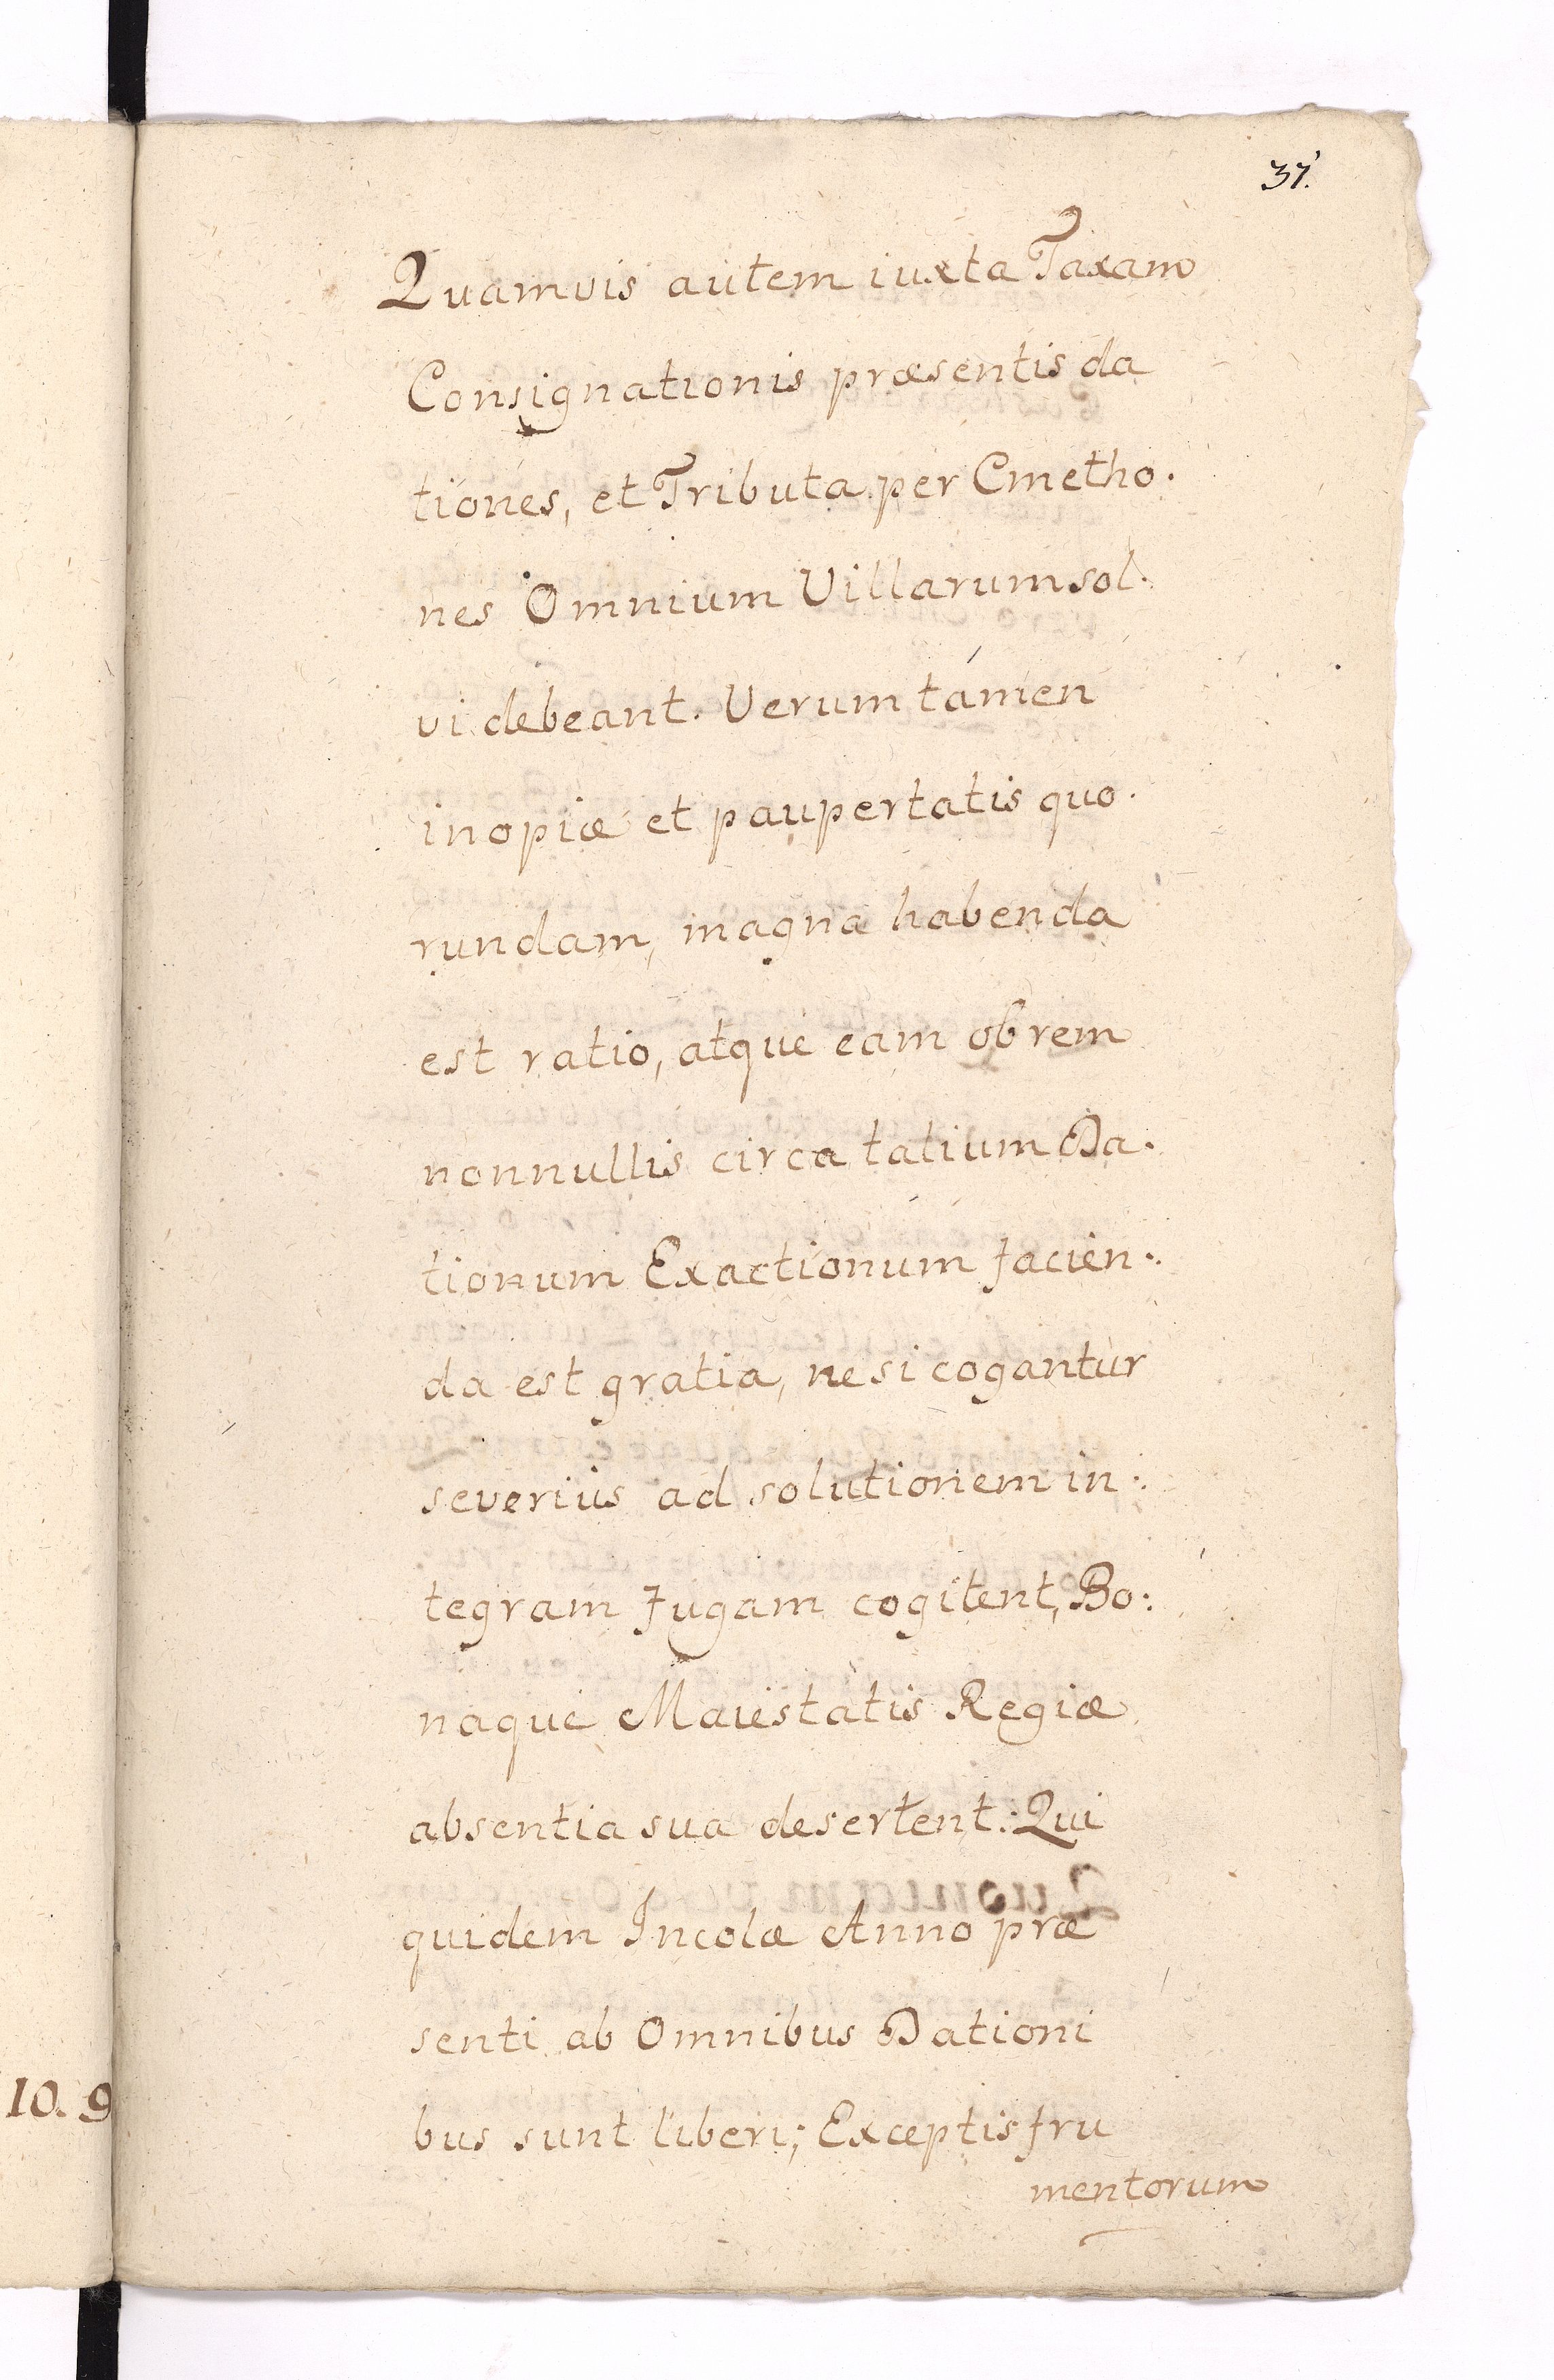 37.
Quamvis autem iuxta Taxam
Consignationis præsentis da
tiones, et Tributa per Cmetho.
nes Omnium Villarum sol.
vi debeant. Verum tamen
inopiæ et paupertatis quo.
rundam, magna habenda
est ratio, atque eam ob rem
nonnullis circa talium Da.
tionum Exactionum facien:
da est gratia, ne si cogantur
severius ad solutionem in:
tegram fugam cogitent, Bo:
naque Maiestatis Regiæ
absentia sua desertent: Qui
quidem Incolæ Anno præ
senti ab Omnibus Dationi
bus sunt liberi; Exceptis fru
mentorum
10. 9